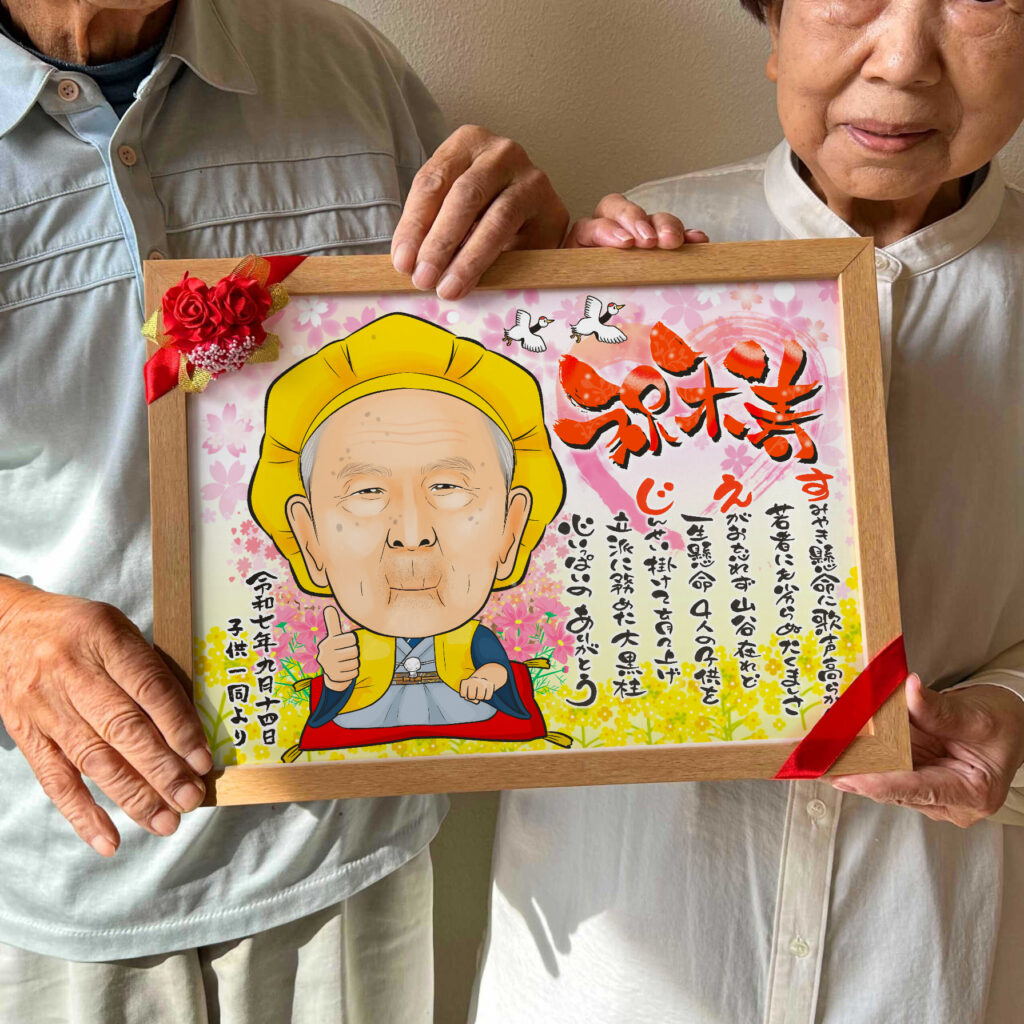 祝米寿
すみやき懸命に歌声高らか
若者にも劣らぬたくましさ
えがお忘れず 山谷在れど
一生懸命 4人の子供を
じんせい掛けて育て上げ
立派に務めた大黒柱
心いっぱいの ありがとう
令和七年 九月十四日
子供一同より